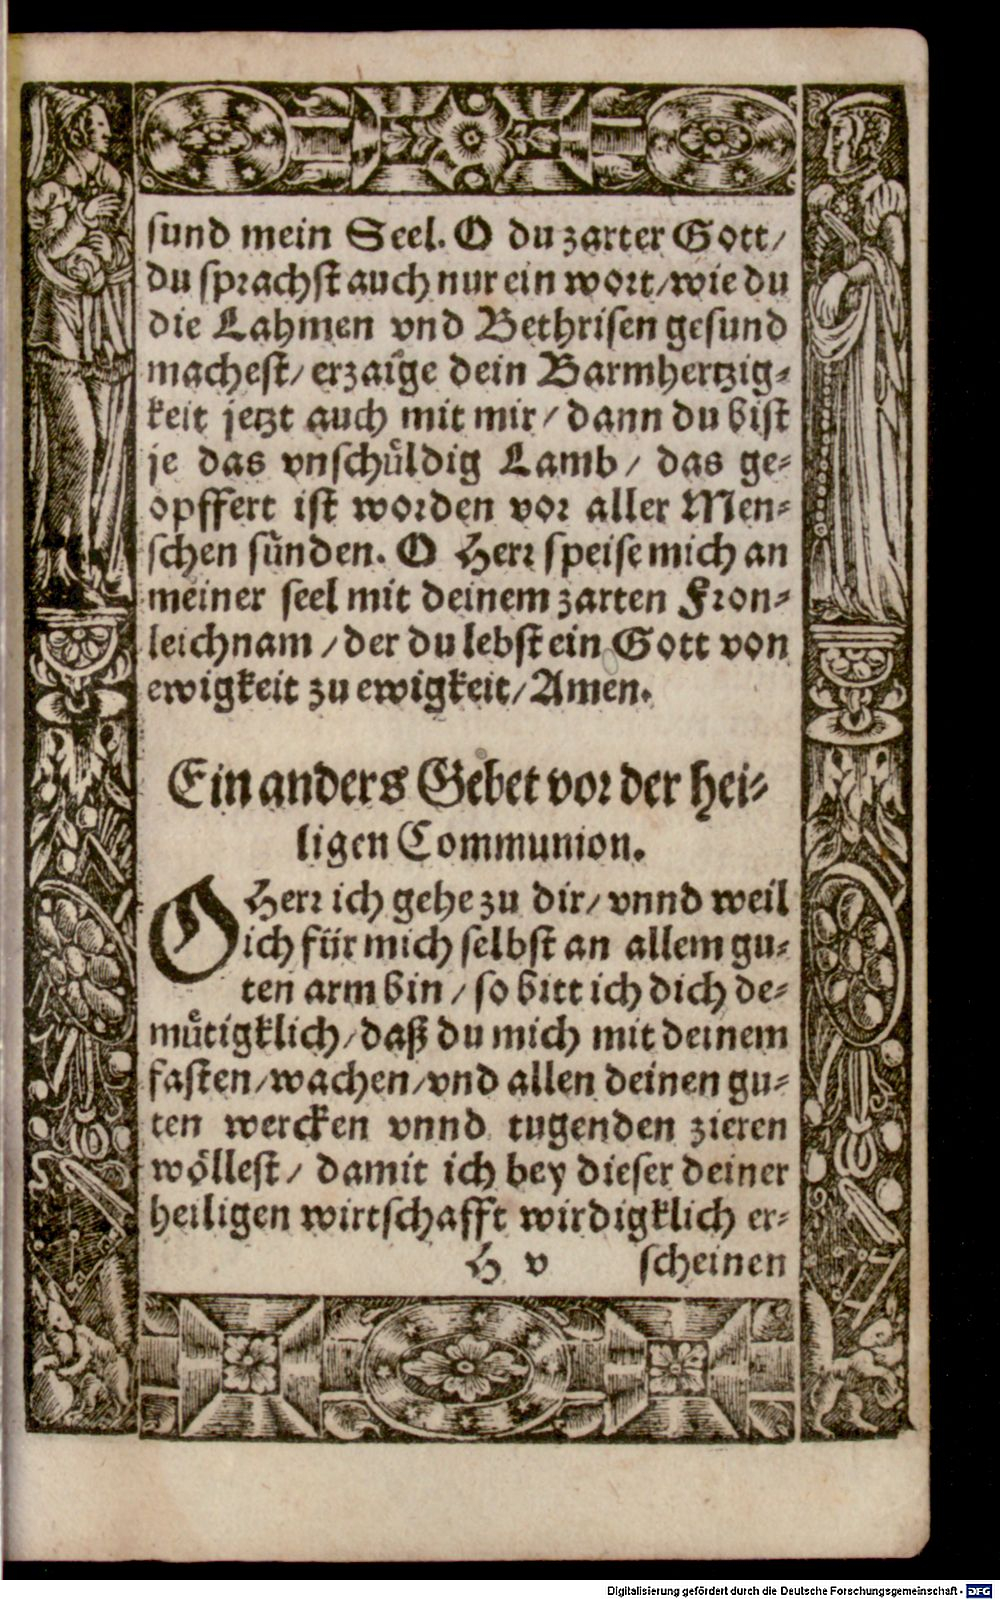 sund mein Seel. O du zarter Gott/
du sprachst auch nur ein wort/wie du
die Lahmen vnd Bethrisen gesund
machest/ erzaige dein Barmhertzig-
keit jetzt auch mit mir/ dann du bist
je das vnschüldig Lamb/ das ge-
opffert ist worden vor aller Men-
schen sünden. O Herr speise mich an
meiner seel mit deinem zarten Fron-
leichnam/der du lebst ein Gott von
ewigkeit zu ewigkeit/Amen.
Ein anders Gebet vor der hei-
ligen Communion.
O Herr ich gehe zu dir/ vnnd weil
ich für mich selbst an allem gu-
ten arm bin/ so bitt ich dich de-
mütigklich/daß du mich mit deinem
fasten/wachen/vnd allen deinen gu-
ten wercken vnnd tugenden zieren
wöllest/ damit ich bey dieser deiner
heiligen wirtschafft wirdigklich er-
H v scheinen
Digitalisierung gefördert durch die Deutsche Forschungsgemeinschaft - DFG